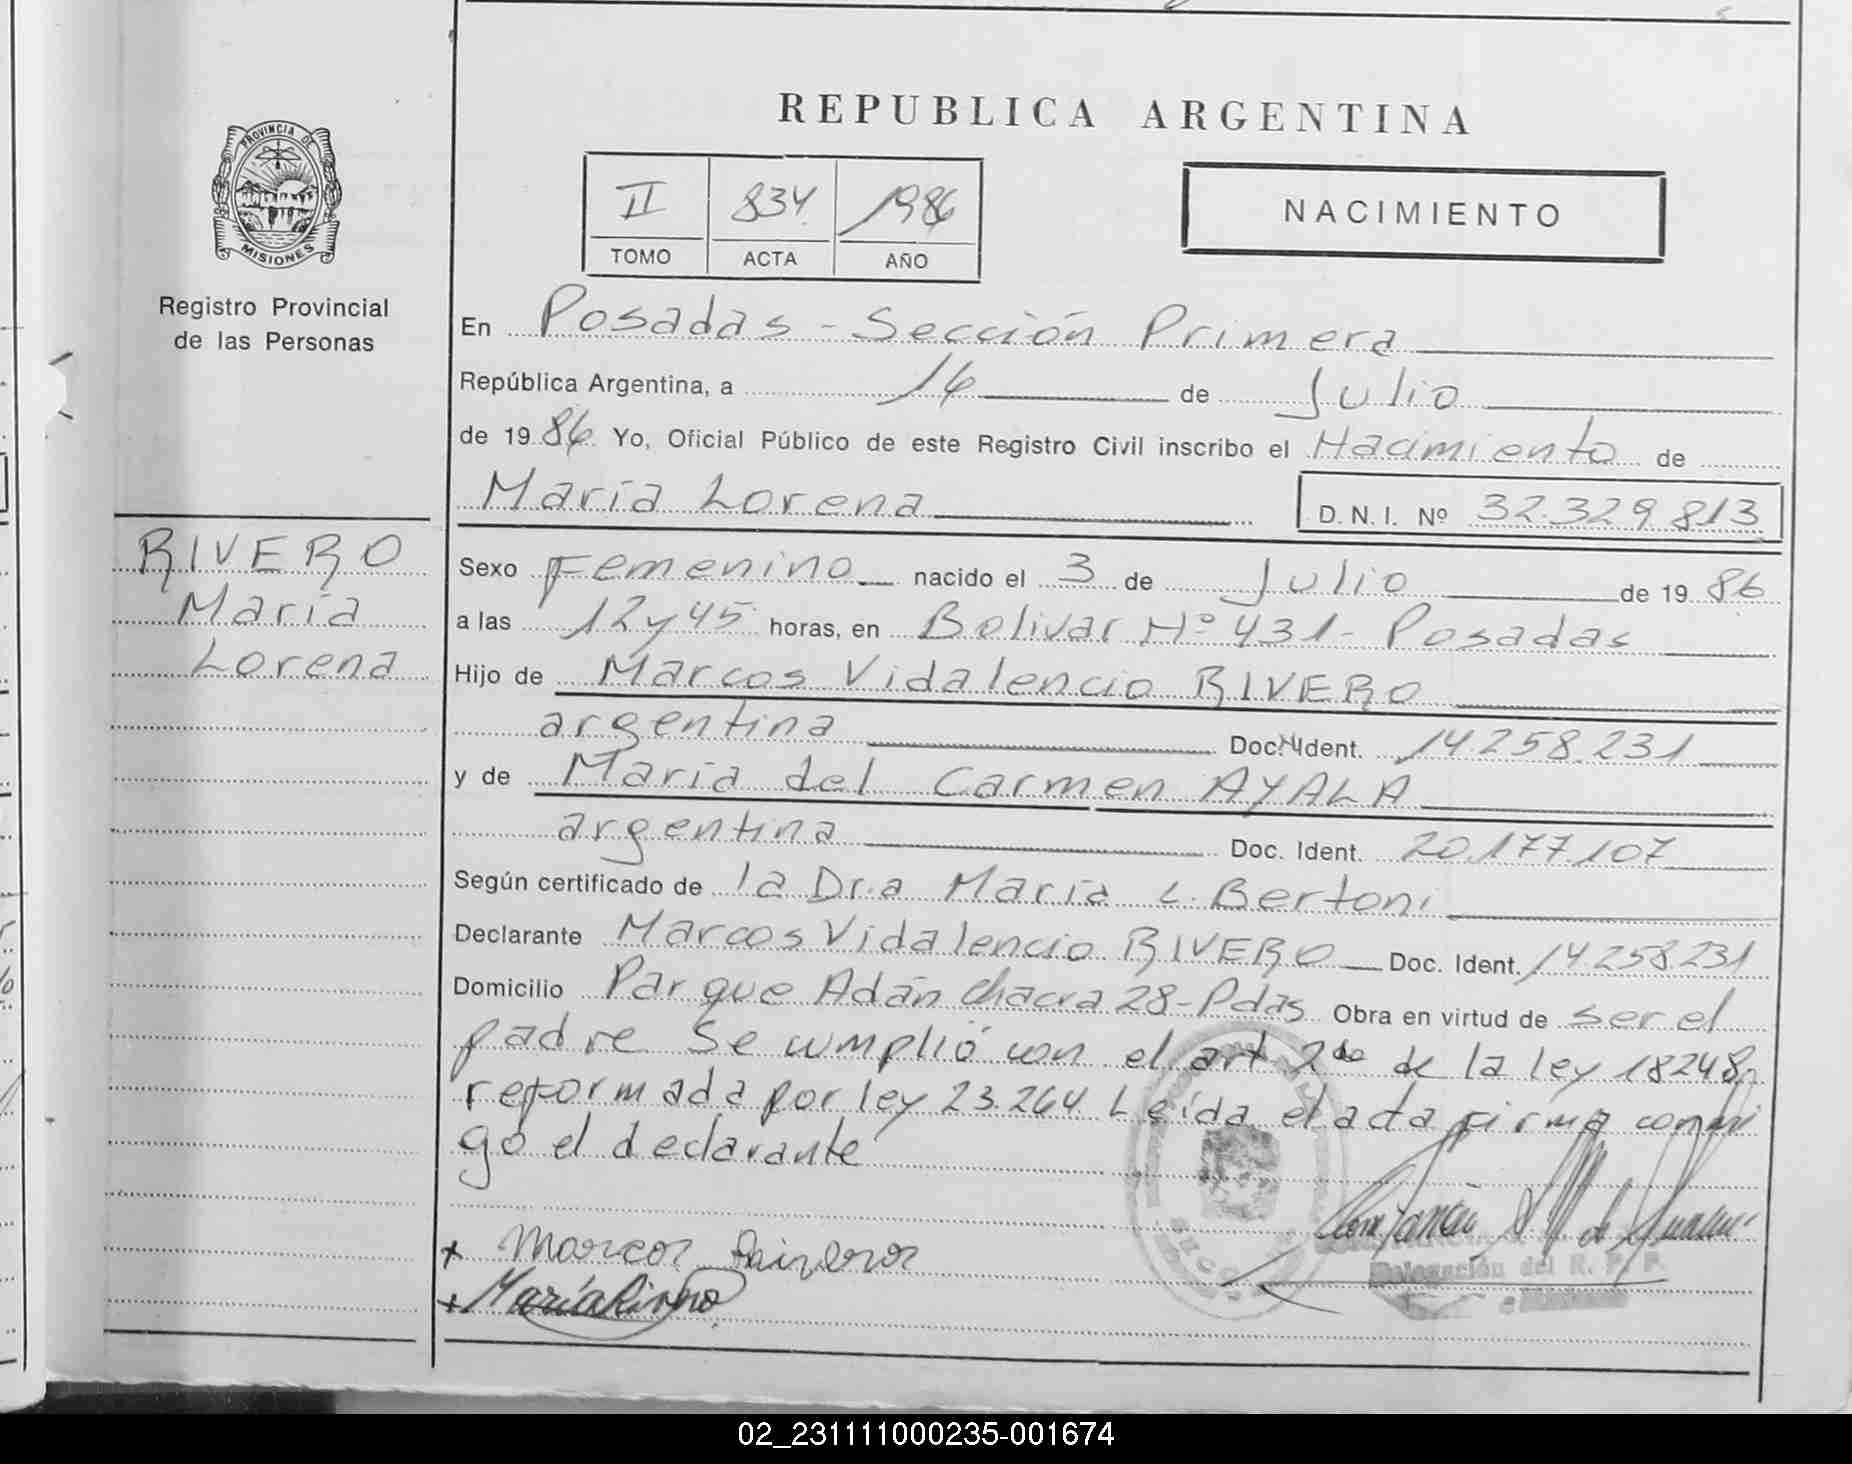 REPUBLICA ARGENTINA
PROVINCIA DE
MISIONES
Registro Provincial
de las Personas
II 834 1986
TOMO ACTA AÑO
NACIMIENTO
En Posadas - Sección Primera
República Argentina, a 14 de Julio
de 1986 Yo, Oficial Público de este Registro Civil inscribo el Nacimiento de
María Lorena D.N.I. Nº 32.329.813
RIVERO
María
Lorena
Sexo Femenino nacido el 3 de Julio de 1986
a las 12 y 45 horas, en Bolivar Nº 431 - Posadas
Hijo de Marcos Vidalencio RIVERO
argentina Doc. Ident. 14.258.231
y de María del Carmen AYALA
argentina Doc. Ident. 20.177.107
Según certificado de la Dr.a María L. Bertoni
Declarante Marcos Vidalencio RIVERO Doc. Ident. 14.258.231
Domicilio Parque Adán Chacra 28 - Pdas Obra en virtud de ser el
padre Se cumplió con el art 2do de la ley 18248,
reformada por ley 23.264 Leída el acta firma conmi
go el declarante
+ Marcos
+ María Rivero
Delegación del R. P. P.
02_231111000235-001674